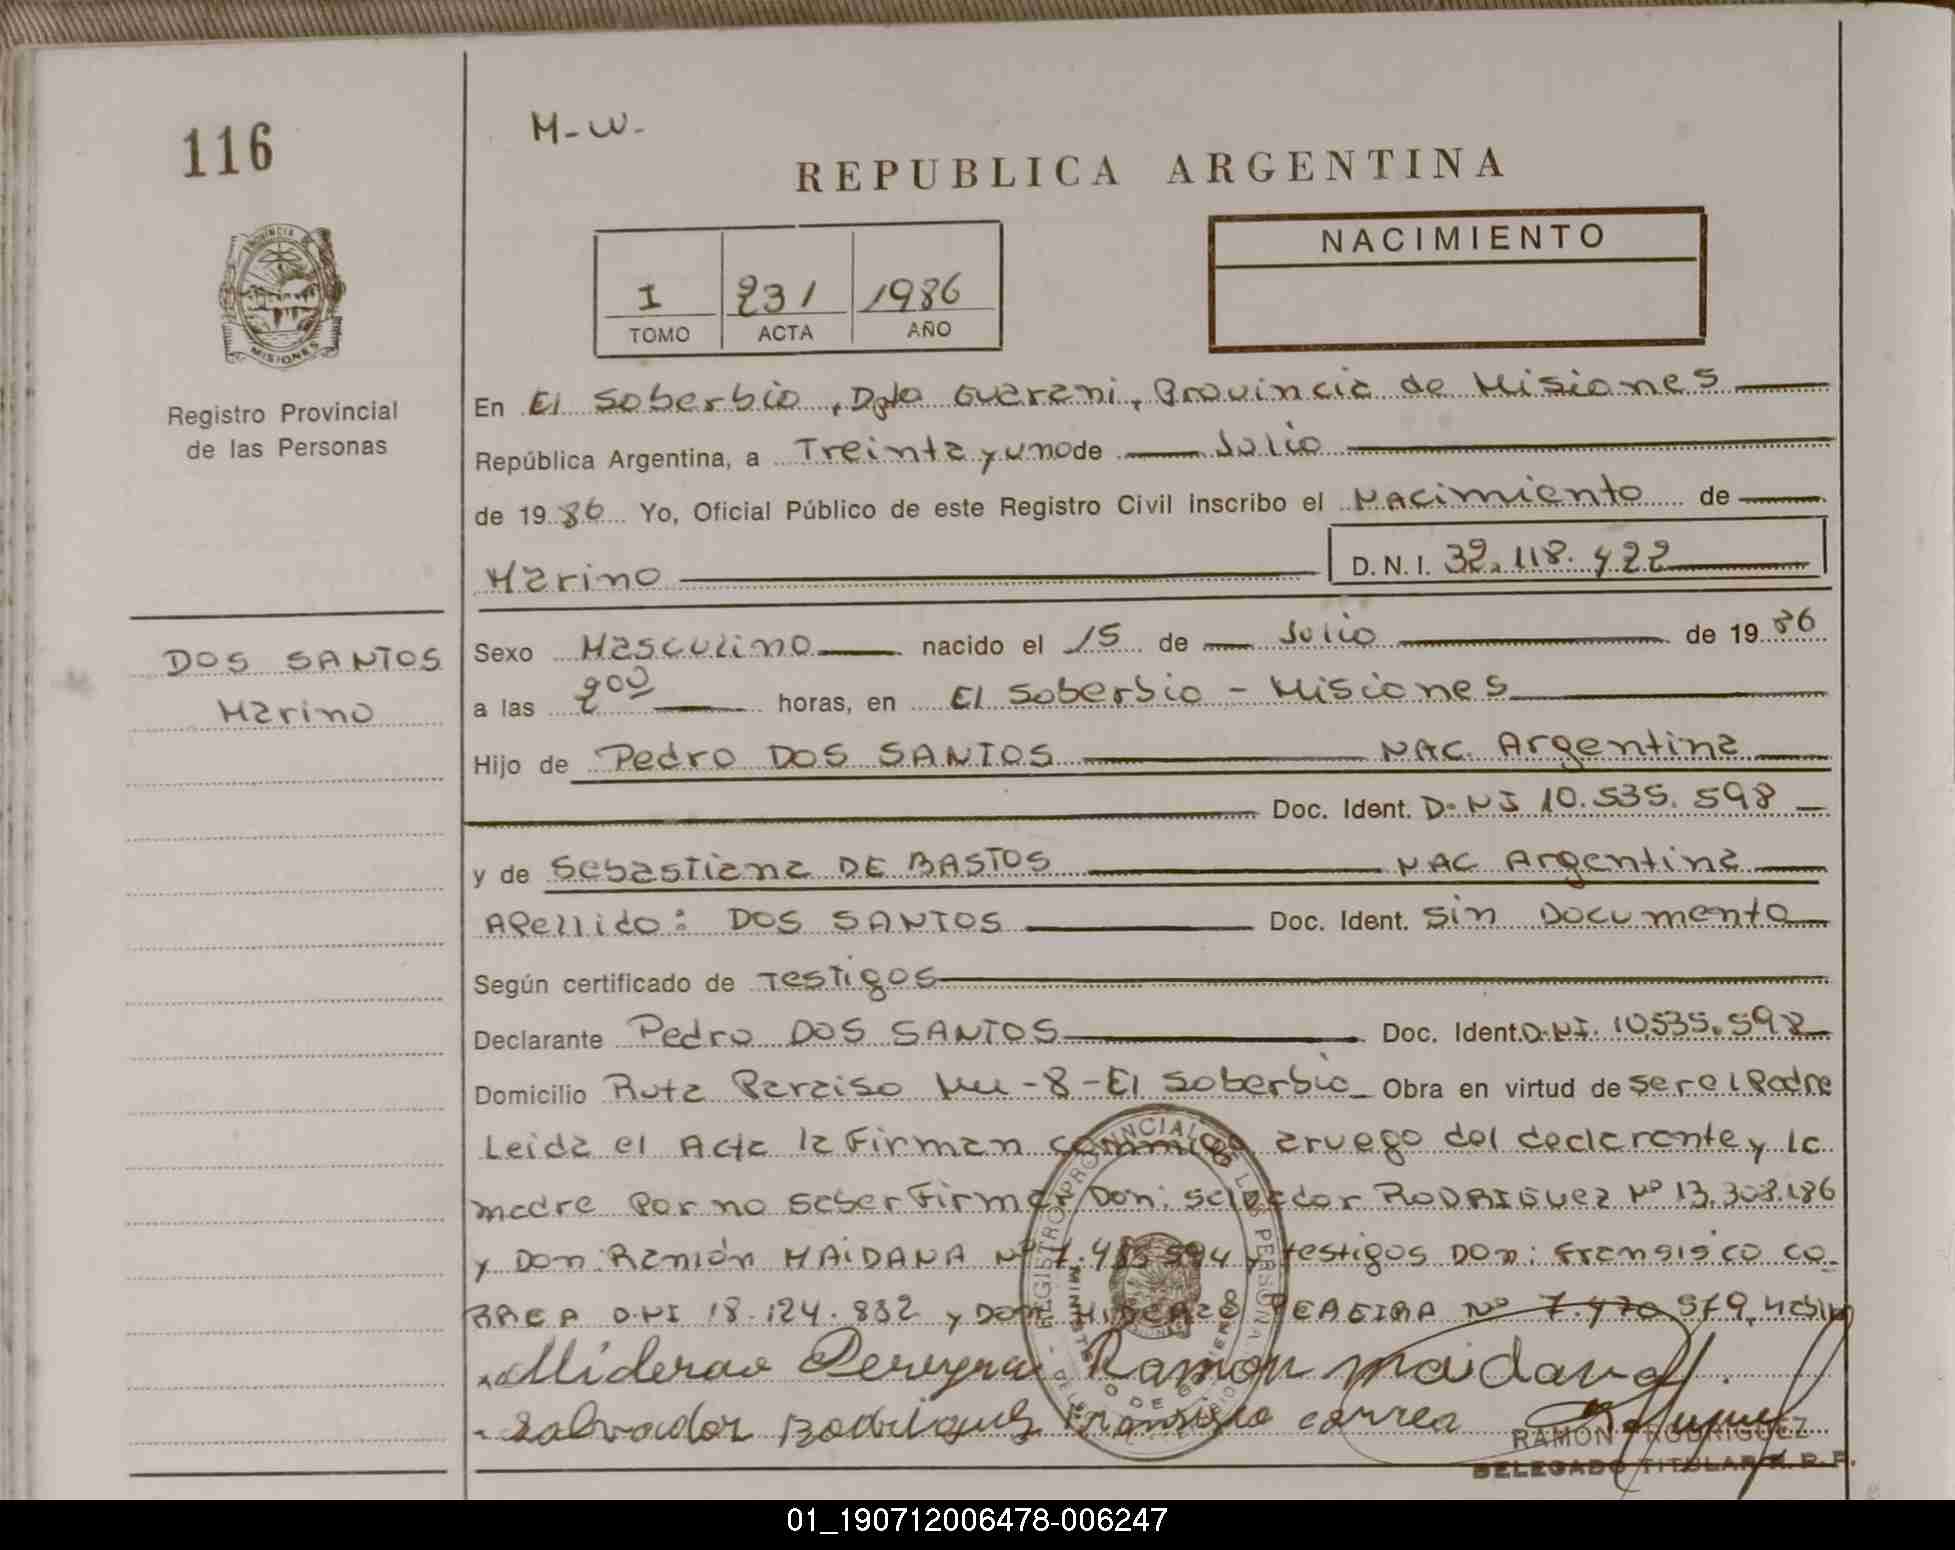 116
M-W-
REPUBLICA ARGENTINA
PROVINCIA DE
MISIONES
Registro Provincial
de las Personas
I 231 1986
TOMO ACTA AÑO
NACIMIENTO
En El Soberbio, Dpto Guarani, Provincia de Misiones
República Argentina, a Treinta y uno de Julio
de 1986 Yo, Oficial Público de este Registro Civil inscribo el Nacimiento de
Marino D.N.I. 32.118.422
DOS SANTOS
Marino
Sexo Masculino nacido el 15 de Julio de 1986
a las 900 horas, en El Soberbio - Misiones
Hijo de Pedro DOS SANTOS NAC. Argentina
Doc. Ident. D.NI 10.535.598
y de Sebastiana DE BASTOS NAC Argentina
Apellido: DOS SANTOS Doc. Ident. Sin Documento
Según certificado de Testigos
Declarante Pedro DOS SANTOS Doc. Ident. D.NI. 10.535.598
Domicilio Ruta Paraiso Km -8- El Soberbio Obra en virtud de ser el Padre
Leida el Acta la Firman conmigo aruego del declarante y la
madre Por no saber Firmar Don: Salvador RODRIGUEZ Nº 13.308.186
y Don: Ramón MAIDANA Nº 7. y testigos Don: Fransisco CO-
RREA D.NI 18.124.832 y Don PEREIRA Nº 7.470.579.
Miderao Pereyra Ramon maidana
Salvador Rodriguez Fransisco correa
RAMON RODRIGUEZ
DELEGADO TITULAR R. P. P.
REGISTRO PROVINCIAL DE LAS PERSONAS
01_190712006478-006247